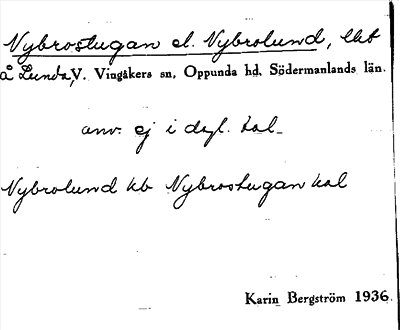 Nybrostugan el. Nybrolund, lht
å Lunda, V. Vingåkers sn, Oppunda hd. Södermanlands län.
anv. ej i dagl. tal
Nybrolund kb Nybrostugan kal
Karin Bergström 1936.